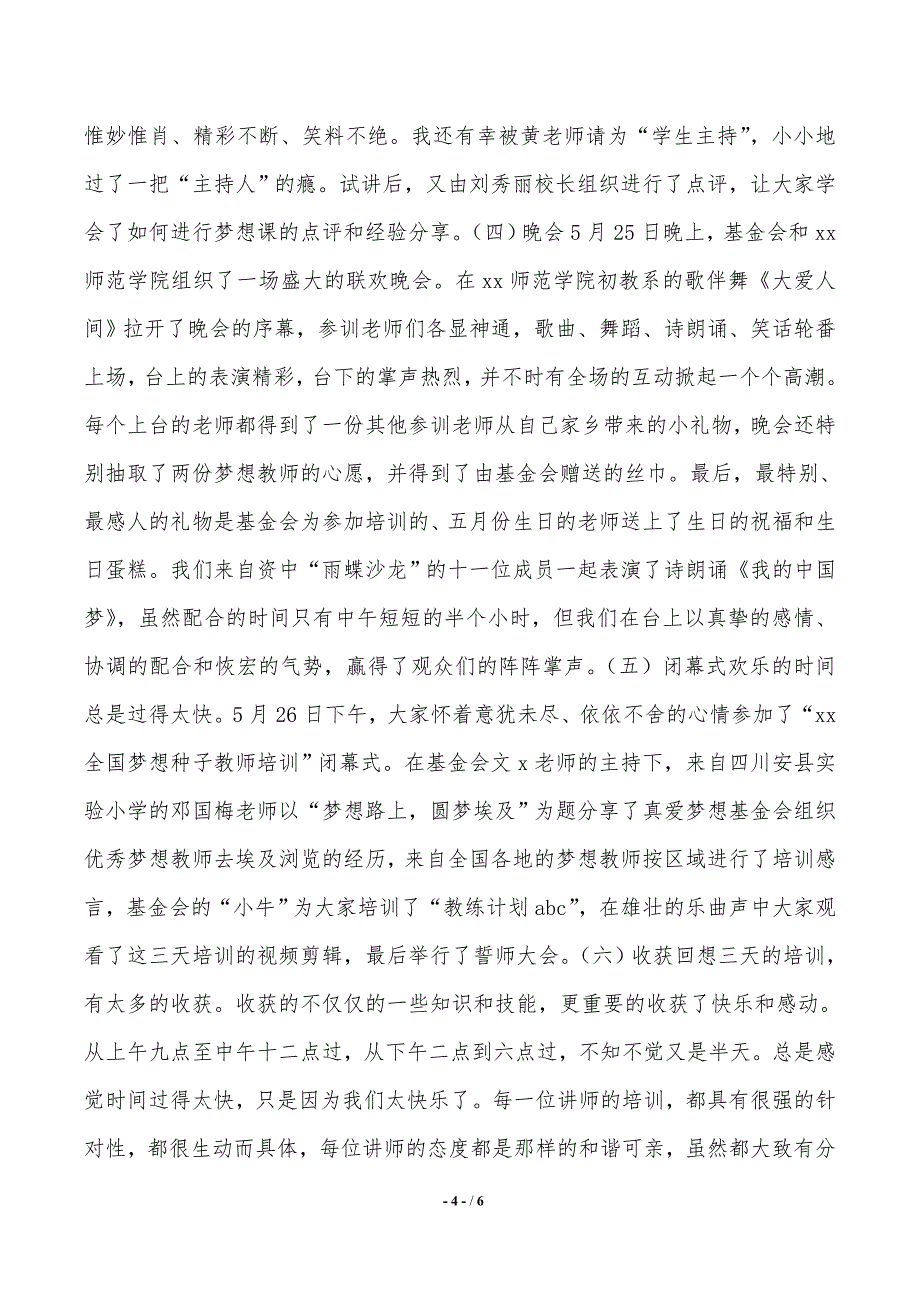 惟妙惟肖、精彩不断、笑料不绝。我还有幸被黄老师请为“学生主持”，小小地
过了一把“主持人”的瘾。试讲后，又由刘秀丽校长组织进行了点评，让大家学
会了如何进行梦想课的点评和经验分享。（四）晚会 5 月 25 日晚上，基金会和 xx
师范学院组织了一场盛大的联欢晚会。在 xx 师范学院初教系的歌伴舞《大爱人
间》拉开了晚会的序幕，参训老师们各显神通，歌曲、舞蹈、诗朗诵、笑话轮番
上场，台上的表演精彩，台下的掌声热烈，并不时有全场的互动掀起一个个高潮。
每个上台的老师都得到了一份其他参训老师从自己家乡带来的小礼物，晚会还特
别抽取了两份梦想教师的心愿，并得到了由基金会赠送的丝巾。最后，最特别、
最感人的礼物是基金会为参加培训的、五月份生日的老师送上了生日的祝福和生
日蛋糕。我们来自资中“雨蝶沙龙”的十一位成员一起表演了诗朗诵《我的中国
梦》，虽然配合的时间只有中午短短的半个小时，但我们在台上以真挚的感情、
协调的配合和恢宏的气势，赢得了观众们的阵阵掌声。（五）闭幕式欢乐的时间
总是过得太快。5 月 26 日下午，大家怀着意犹未尽、依依不舍的心情参加了“xx
全国梦想种子教师培训”闭幕式。在基金会文 x 老师的主持下，来自四川安县实
验小学的邓国梅老师以“梦想路上，圆梦埃及”为题分享了真爱梦想基金会组织
优秀梦想教师去埃及浏览的经历，来自全国各地的梦想教师按区域进行了培训感
言，基金会的“小牛”为大家培训了“教练计划 abc”，在雄壮的乐曲声中大家观
看了这三天培训的视频剪辑，最后举行了誓师大会。（六）收获回想三天的培训，
有太多的收获。收获的不仅仅的一些知识和技能，更重要的收获了快乐和感动。
从上午九点至中午十二点过，从下午二点到六点过，不知不觉又是半天。总是感
觉时间过得太快，只是因为我们太快乐了。每一位讲师的培训，都具有很强的针
对性，都很生动而具体，每位讲师的态度都是那样的和谐可亲，虽然都大致有分
- 4 - / 6